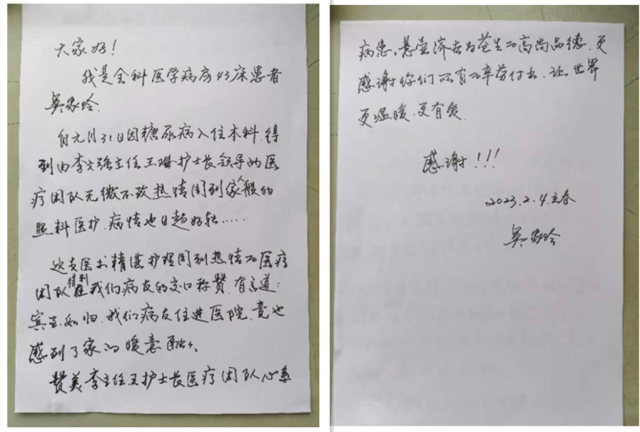 大家好！
我是全科医学病房43床患者
吴家玲
自元月31日因糖尿病入住本科.得
到由李文强主任王琳护士长领导的医
疗团队无微不致热情周到家般的
照料医护.病情也日趋好转……
这支医术精湛护理周到热情的医疗
团队得到我们病友的交口称赞.有言道：
宾至如归.我们病友住进医院.竟也
感到了家的暖意融融.
赞美李主任王护士长医疗团队心系
病患，悬壶济世为苍生的高尚品德.更
感谢你们所有的辛苦付出.让世界
更温暖.更有爱
感谢！！！
2023.2.4.立春
吴家玲